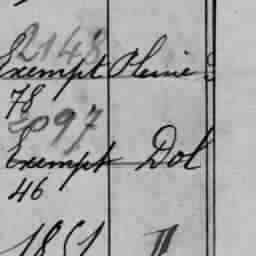 2148
Exempt Pleine
78
97
Exempt Dol
46
1851